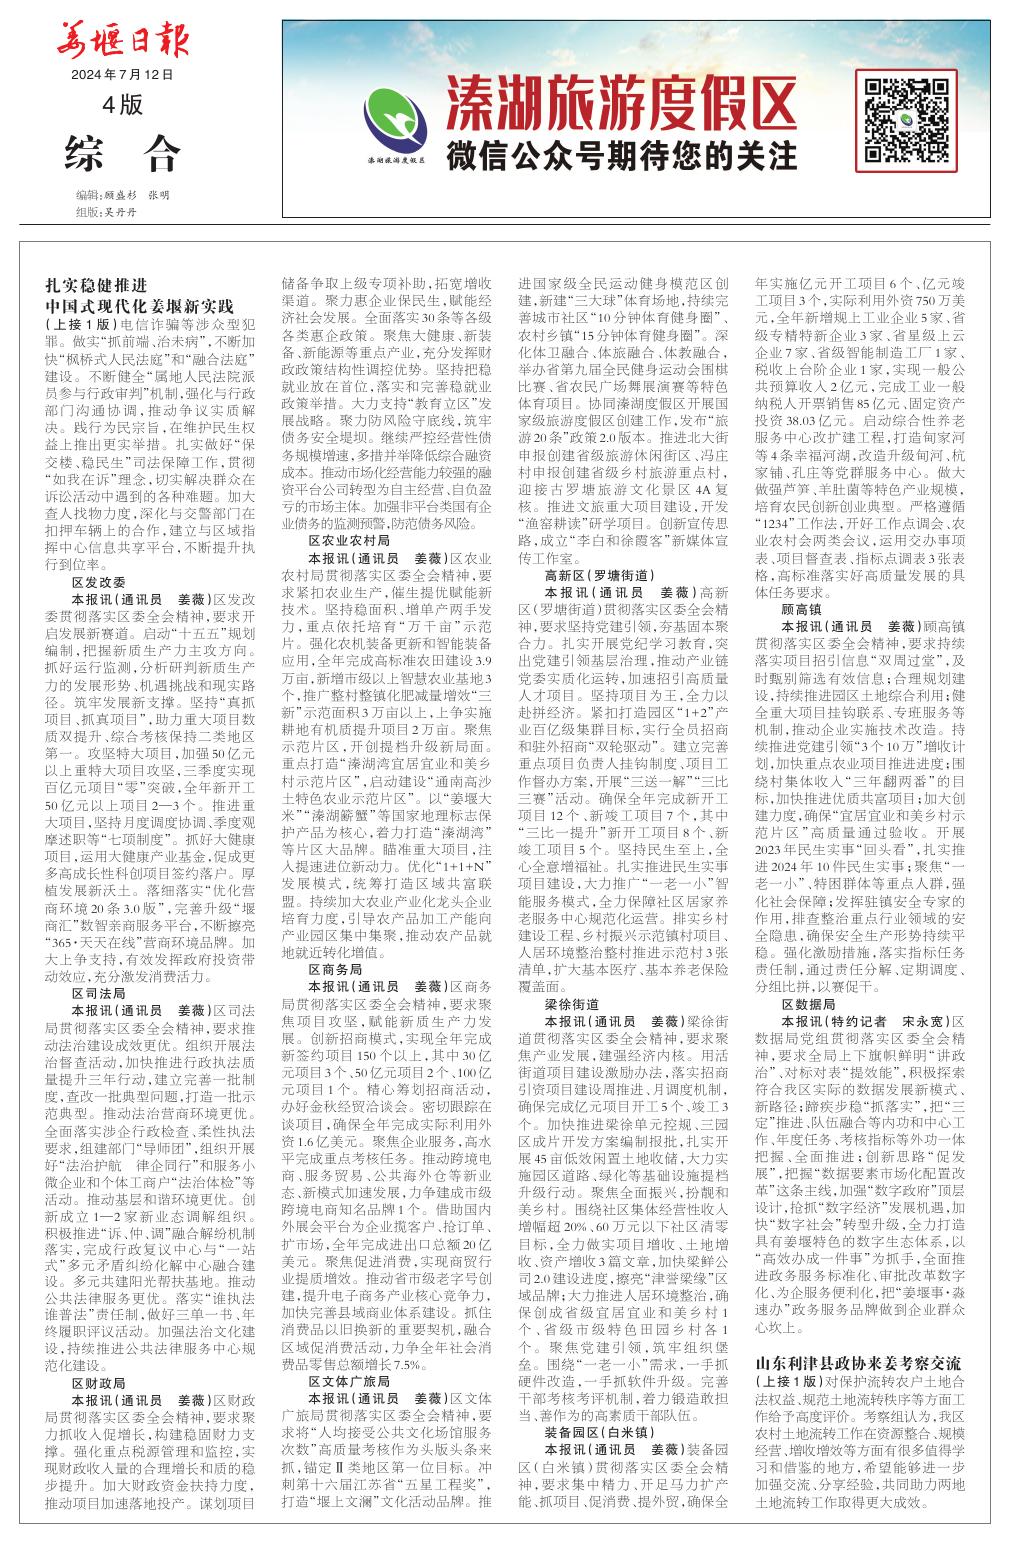 姜堰日報
2024年7月12日
4版
综 合
编辑:顾盛杉 张明
组版:吴丹丹
溱湖旅游度假区
溱湖旅游度假区
微信公众号期待您的关注
扎实稳健推进
中国式现代化姜堰新实践
(上接1版)电信诈骗等涉众型犯
罪。做实“抓前端、治未病”,不断加
快“枫桥式人民法庭”和“融合法庭”
建设。不断健全“属地人民法院派
员参与行政审判”机制,强化与行政
部门沟通协调,推动争议实质解
决。践行为民宗旨,在维护民生权
益上推出更实举措。扎实做好“保
交楼、稳民生”司法保障工作,贯彻
“如我在诉”理念,切实解决群众在
诉讼活动中遇到的各种难题。加大
查人找物力度,深化与交警部门在
扣押车辆上的合作,建立与区域指
挥中心信息共享平台,不断提升执
行到位率。
区发改委
本报讯(通讯员 姜薇)区发改
委贯彻落实区委全会精神,要求开
启发展新赛道。启动“十五五”规划
编制,把握新质生产力主攻方向。
抓好运行监测,分析研判新质生产
力的发展形势、机遇挑战和现实路
径。筑牢发展新支撑。坚持“真抓
项目、抓真项目”,助力重大项目数
质双提升、综合考核保持二类地区
第一。攻坚特大项目,加强50亿元
以上重特大项目攻坚,三季度实现
百亿元项目“零”突破,全年新开工
50亿元以上项目2—3个。推进重
大项目,坚持月度调度协调、季度观
摩述职等“七项制度”。抓好大健康
项目,运用大健康产业基金,促成更
多高成长性科创项目签约落户。厚
植发展新沃土。落细落实“优化营
商环境20条3.0版”,完善升级“堰
商汇”数智亲商服务平台,不断擦亮
“365·天天在线”营商环境品牌。加
大上争支持,有效发挥政府投资带
动效应,充分激发消费活力。
区司法局
本报讯(通讯员 姜薇)区司法
局贯彻落实区委全会精神,要求推
动法治建设成效更优。组织开展法
治督查活动,加快推进行政执法质
量提升三年行动,建立完善一批制
度,查改一批典型问题,打造一批示
范典型。推动法治营商环境更优。
全面落实涉企行政检查、柔性执法
要求,组建部门“导师团”,组织开展
好“法治护航 律企同行”和服务小
微企业和个体工商户“法治体检”等
活动。推动基层和谐环境更优。创
新成立1—2家新业态调解组织。
积极推进“诉、仲、调”融合解纷机制
落实,完成行政复议中心与“一站
式”多元矛盾纠纷化解中心融合建
设。多元共建阳光帮扶基地。推动
公共法律服务更优。落实“谁执法
谁普法”责任制,做好三单一书、年
终履职评议活动。加强法治文化建
设,持续推进公共法律服务中心规
范化建设。
区财政局
本报讯(通讯员 姜薇)区财政
局贯彻落实区委全会精神,要求聚
力抓收入促增长,构建稳固财力支
撑。强化重点税源管理和监控,实
现财政收入量的合理增长和质的稳
步提升。加大财政资金扶持力度,
推动项目加速落地投产。谋划项目
储备争取上级专项补助,拓宽增收
渠道。聚力惠企业保民生,赋能经
济社会发展。全面落实30条等各级
各类惠企政策。聚焦大健康、新装
备、新能源等重点产业,充分发挥财
政政策结构性调控优势。坚持把稳
就业放在首位,落实和完善稳就业
政策举措。大力支持“教育立区”发
展战略。聚力防风险守底线,筑牢
债务安全堤坝。继续严控经营性债
务规模增速,多措并举降低综合融资
成本。推动市场化经营能力较强的融
资平台公司转型为自主经营、自负盈
亏的市场主体。加强非平台类国有企
业债务的监测预警,防范债务风险。
区农业农村局
本报讯(通讯员 姜薇)区农业
农村局贯彻落实区委全会精神,要
求紧扣农业生产,催生提优赋能新
技术。坚持稳面积、增单产两手发
力,重点依托培育“万千亩”示范
片。强化农机装备更新和智能装备
应用,全年完成高标准农田建设3.9
万亩,新增市级以上智慧农业基地3
个,推广整村整镇化肥减量增效“三
新”示范面积3万亩以上,上争实施
耕地有机质提升项目2万亩。聚焦
示范片区,开创提档升级新局面。
重点打造“溱湖湾宜居宜业和美乡
村示范片区”,启动建设“通南高沙
土特色农业示范片区”。以“姜堰大
米”“溱湖簖蟹”等国家地理标志保
护产品为核心,着力打造“溱湖湾”
等片区大品牌。瞄准重大项目,注
入提速进位新动力。优化“1+1+N”
发展模式,统筹打造区域共富联
盟。持续加大农业产业化龙头企业
培育力度,引导农产品加工产能向
产业园区集中集聚,推动农产品就
地就近转化增值。
区商务局
本报讯(通讯员 姜薇)区商务
局贯彻落实区委全会精神,要求聚
焦项目攻坚,赋能新质生产力发
展。创新招商模式,实现全年完成
新签约项目150个以上,其中30亿
元项目3个、50亿元项目2个、100亿
元项目1个。精心筹划招商活动,
办好金秋经贸洽谈会。密切跟踪在
谈项目,确保全年完成实际利用外
资1.6亿美元。聚焦企业服务,高水
平完成重点考核任务。推动跨境电
商、服务贸易、公共海外仓等新业
态、新模式加速发展,力争建成市级
跨境电商知名品牌1个。借助国内
外展会平台为企业揽客户、抢订单、
扩市场,全年完成进出口总额20亿
美元。聚焦促进消费,实现商贸行
业提质增效。推动省市级老字号创
建,提升电子商务产业核心竞争力,
加快完善县域商业体系建设。抓住
消费品以旧换新的重要契机,融合
区域促消费活动,力争全年社会消
费品零售总额增长7.5%。
区文体广旅局
本报讯(通讯员 姜薇)区文体
广旅局贯彻落实区委全会精神,要
求将“人均接受公共文化场馆服务
次数”高质量考核作为头版头条来
抓,锚定Ⅱ类地区第一位目标。冲
刺第十六届江苏省“五星工程奖”,
打造“堰上文澜”文化活动品牌。推
进国家级全民运动健身模范区创
建,新建“三大球”体育场地,持续完
善城市社区“10分钟体育健身圈”、
农村乡镇“15分钟体育健身圈”。深
化体卫融合、体旅融合、体教融合,
举办省第九届全民健身运动会围棋
比赛、省农民广场舞展演赛等特色
体育项目。协同溱湖度假区开展国
家级旅游度假区创建工作,发布“旅
游20条”政策2.0版本。推进北大街
申报创建省级旅游休闲街区、冯庄
村申报创建省级乡村旅游重点村,
迎接古罗塘旅游文化景区4A复
核。推进文旅重大项目建设,开发
“渔窑耕读”研学项目。创新宣传思
路,成立“李白和徐霞客”新媒体宣
传工作室。
高新区(罗塘街道)
本报讯(通讯员 姜薇)高新
区(罗塘街道)贯彻落实区委全会精
神,要求坚持党建引领,夯基固本聚
合力。扎实开展党纪学习教育,突
出党建引领基层治理,推动产业链
党委实质化运转,加速招引高质量
人才项目。坚持项目为王,全力以
赴拼经济。紧扣打造园区“1+2”产
业百亿级集群目标,实行全员招商
和驻外招商“双轮驱动”。建立完善
重点项目负责人挂钩制度、项目工
作督办方案,开展“三送一解”“三比
三赛”活动。确保全年完成新开工
项目12个、新竣工项目7个,其中
“三比一提升”新开工项目8个、新
竣工项目5个。坚持民生至上,全
心全意增福祉。扎实推进民生实事
项目建设,大力推广“一老一小”智
能服务模式,全力保障社区居家养
老服务中心规范化运营。排实乡村
建设工程、乡村振兴示范镇村项目、
人居环境整治整村推进示范村3张
清单,扩大基本医疗、基本养老保险
覆盖面。
梁徐街道
本报讯(通讯员 姜薇)梁徐街
道贯彻落实区委全会精神,要求聚
焦产业发展,建强经济内核。用活
街道项目建设激励办法,落实招商
引资项目建设周推进、月调度机制,
确保完成亿元项目开工5个、竣工3
个。加快推进梁徐单元控规、三园
区成片开发方案编制报批,扎实开
展45亩低效闲置土地收储,大力实
施园区道路、绿化等基础设施提档
升级行动。聚焦全面振兴,扮靓和
美乡村。围绕社区集体经营性收入
增幅超20%、60万元以下社区清零
目标,全力做实项目增收、土地增
收、资产增收3篇文章,加快梁鲜公
司2.0建设进度,擦亮“津誉梁缘”区
域品牌;大力推进人居环境整治,确
保创成省级宜居宜业和美乡村1
个、省级市级特色田园乡村各1
个。聚焦党建引领,筑牢组织堡
垒。围绕“一老一小”需求,一手抓
硬件改造,一手抓软件升级。完善
干部考核考评机制,着力锻造敢担
当、善作为的高素质干部队伍。
装备园区(白米镇)
本报讯(通讯员 姜薇)装备园
区(白米镇)贯彻落实区委全会精
神,要求集中精力、开足马力扩产
能、抓项目、促消费、提外贸,确保全
年实施亿元开工项目6个、亿元竣
工项目3个,实际利用外资750万美
元,全年新增规上工业企业5家、省
级专精特新企业3家、省星级上云
企业7家、省级智能制造工厂1家、
税收上台阶企业1家,实现一般公
共预算收入2亿元,完成工业一般
纳税人开票销售85亿元、固定资产
投资38.03亿元。启动综合性养老
服务中心改扩建工程,打造甸家河
等4条幸福河湖,改造升级甸河、杭
家铺、孔庄等党群服务中心。做大
做强芦笋、羊肚菌等特色产业规模,
培育农民创新创业典型。严格遵循
“1234”工作法,开好工作点调会、农
业农村会两类会议,运用交办事项
表、项目督查表、指标点调表3张表
格,高标准落实好高质量发展的具
体任务要求。
顾高镇
本报讯(通讯员 姜薇)顾高镇
贯彻落实区委全会精神,要求持续
落实项目招引信息“双周过堂”,及
时甄别筛选有效信息;合理规划建
设,持续推进园区土地综合利用;健
全重大项目挂钩联系、专班服务等
机制,推动企业实施技术改造。持
续推进党建引领“3个10万”增收计
划,加快重点农业项目推进进度;围
绕村集体收入“三年翻两番”的目
标,加快推进优质共富项目;加大创
建力度,确保“宜居宜业和美乡村示
范片区”高质量通过验收。开展
2023年民生实事“回头看”,扎实推
进2024年10件民生实事;聚焦“一
老一小”、特困群体等重点人群,强
化社会保障;发挥驻镇安全专家的
作用,排查整治重点行业领域的安
全隐患,确保安全生产形势持续平
稳。强化激励措施,落实指标任务
责任制,通过责任分解、定期调度、
分组比拼,以赛促干。
区数据局
本报讯(特约记者 宋永宽)区
数据局党组贯彻落实区委全会精
神,要求全局上下旗帜鲜明“讲政
治”、对标对表“提效能”,积极探索
符合我区实际的数据发展新模式、
新路径;蹄疾步稳“抓落实”,把“三
定”推进、队伍融合等内功和中心工
作、年度任务、考核指标等外功一体
把握、全面推进;创新思路“促发
展”,把握“数据要素市场化配置改
革”这条主线,加强“数字政府”顶层
设计,抢抓“数字经济”发展机遇,加
快“数字社会”转型升级,全力打造
具有姜堰特色的数字生态体系,以
“高效办成一件事”为抓手,全面推
进政务服务标准化、审批改革数字
化、为企服务便利化,把“姜堰事·淼
速办”政务服务品牌做到企业群众
心坎上。
山东利津县政协来姜考察交流
(上接1版)对保护流转农户土地合
法权益、规范土地流转秩序等方面工
作给予高度评价。考察组认为,我区
农村土地流转工作在资源整合、规模
经营、增收增效等方面有很多值得学
习和借鉴的地方,希望能够进一步
加强交流、分享经验,共同助力两地
土地流转工作取得更大成效。